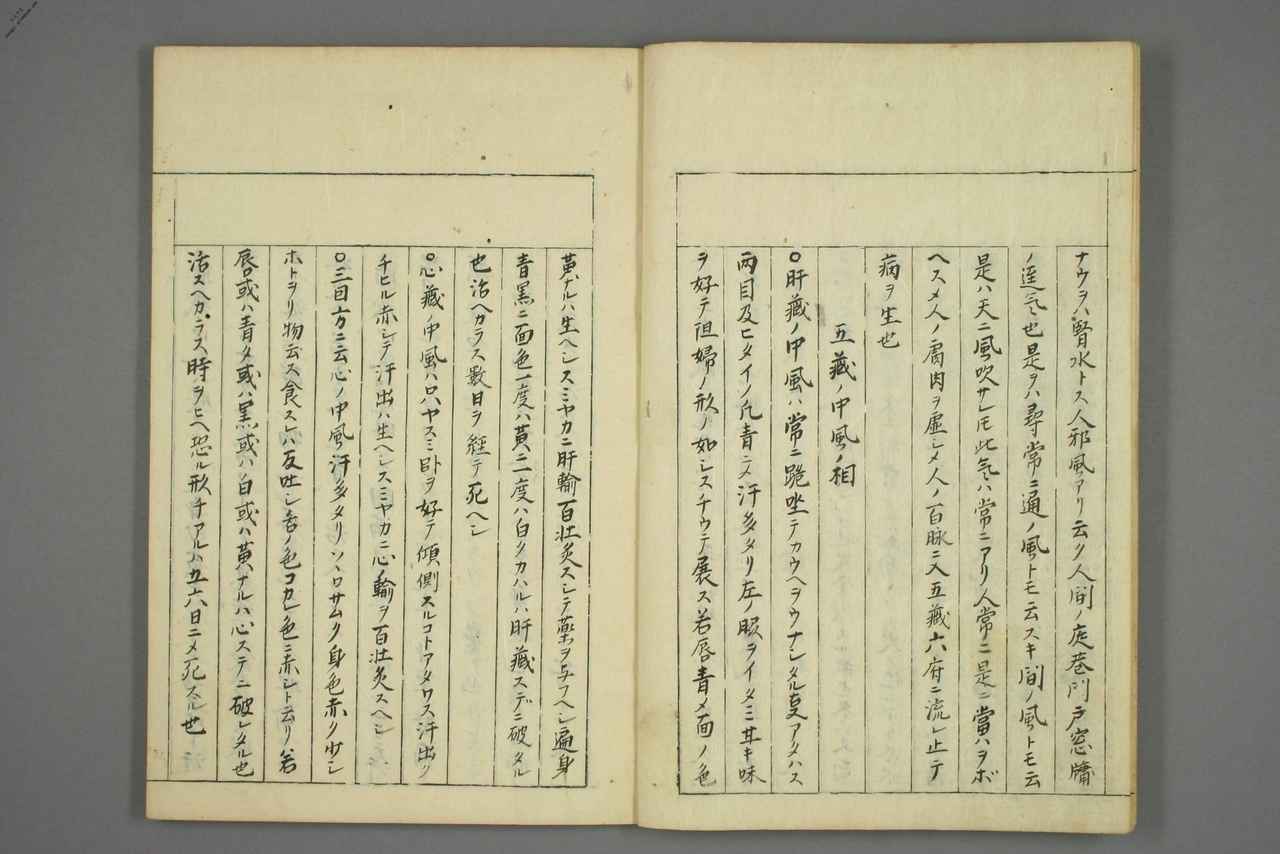 ナウヲハ腎水トス人邪風アリ云ク人間ノ庭巷門戸窓牖
ノ逆気也是ヲハ尋常ニ通ノ風トモ云スキ間ノ風トモ云
是ハ天ニ風吹サレ𪜈此気ハ常ニアリ人常ニ是ニ當ハヲボ
ヘスメ人ノ膚肉ヲ虚シメ人ノ百脉ニ入五藏六府ニ流レ止テ
病ヲ生也
五藏ノ中風ノ相
○肝藏ノ中風ハ常ニ跪坐テカウヘヲウナシタル叓アタハス
両目及ヒタイノ凡青ニメ汗多タリ左ノ眼ヲイタミ甘キ味
ヲ好テ但婦ノ形ノ如シスチウテ展ス若唇青メ面ノ色
黄ナルハ生ヘシスミヤカニ肝輸百壮灸スシテ薬ヲ与フヘシ遍身
青黒ニ面色一度ハ黄ニ一度ハ白クカハルハ肝藏ステニ破タル
也治ヘカラス數日ヲ經テ死ヘシ
○心藏ノ中風ハ只ヤスミ卧ヲ好テ傾側スルコトアタワス汗出ク
チヒル赤シテ汗出ハ生ヘシスミヤカニ心輸ヲ百壮灸スヘシ
○三因方ニ云心ノ中風汗多タリソヽロサムク身色赤ク少シ
ホトヲリ物云ス食スレハ反吐シ舌ノ色コカレ色ニ赤シト云リ若
唇或ハ青タ或ハ黒或ハ白或ハ黄ナルハ心ステニ破レタル也
治スヘカラス時ヲヒヘ恐ル形チアルハ五六日ニメ死スル也